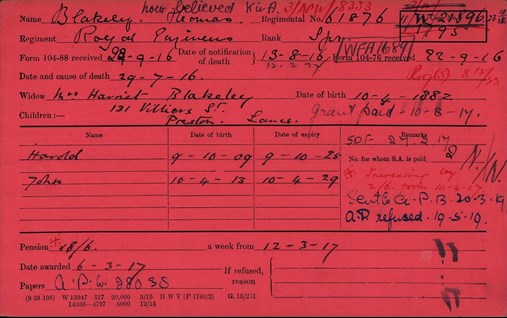 now believed K in A. 3/NW/8333
Name Blakeley, Thomas. Regimental No. 61876 W-21896
Regiment Royal Engineers Rank Spr. 1795
WFA 16891
Form 104-88 received 29-9-16 Date of notification of death 13-8-16 Form 104-76 received 22-9-16
Date and cause of death 29-7-16.
Widow Mrs Harriet Blakeley Date of birth 10-4-1882
Children:— 131 Villiers St. Grant paid 10-8-17.
Preston Lancs.
Name Date of birth Date of expiry Remarks
Harold 9-10-09 9-10-25 50/- 27-2-17
No. for whom S.A. is paid 2
John 10-4-13 10-4-29 * Increasing by
2/6. from 10-4-17
Sent to P.B. 20-3-19
A.P. refused. 19-5-19.
Pension * 18/6. a week from 12-3-17
Date awarded 6-3-17 If refused, reason
Papers A.P.W. 28035
(9 38 106) W 13047—517 20,000 3/15 H W V (P 1760/2) G. 15/251
14336—4797 5000 12/15